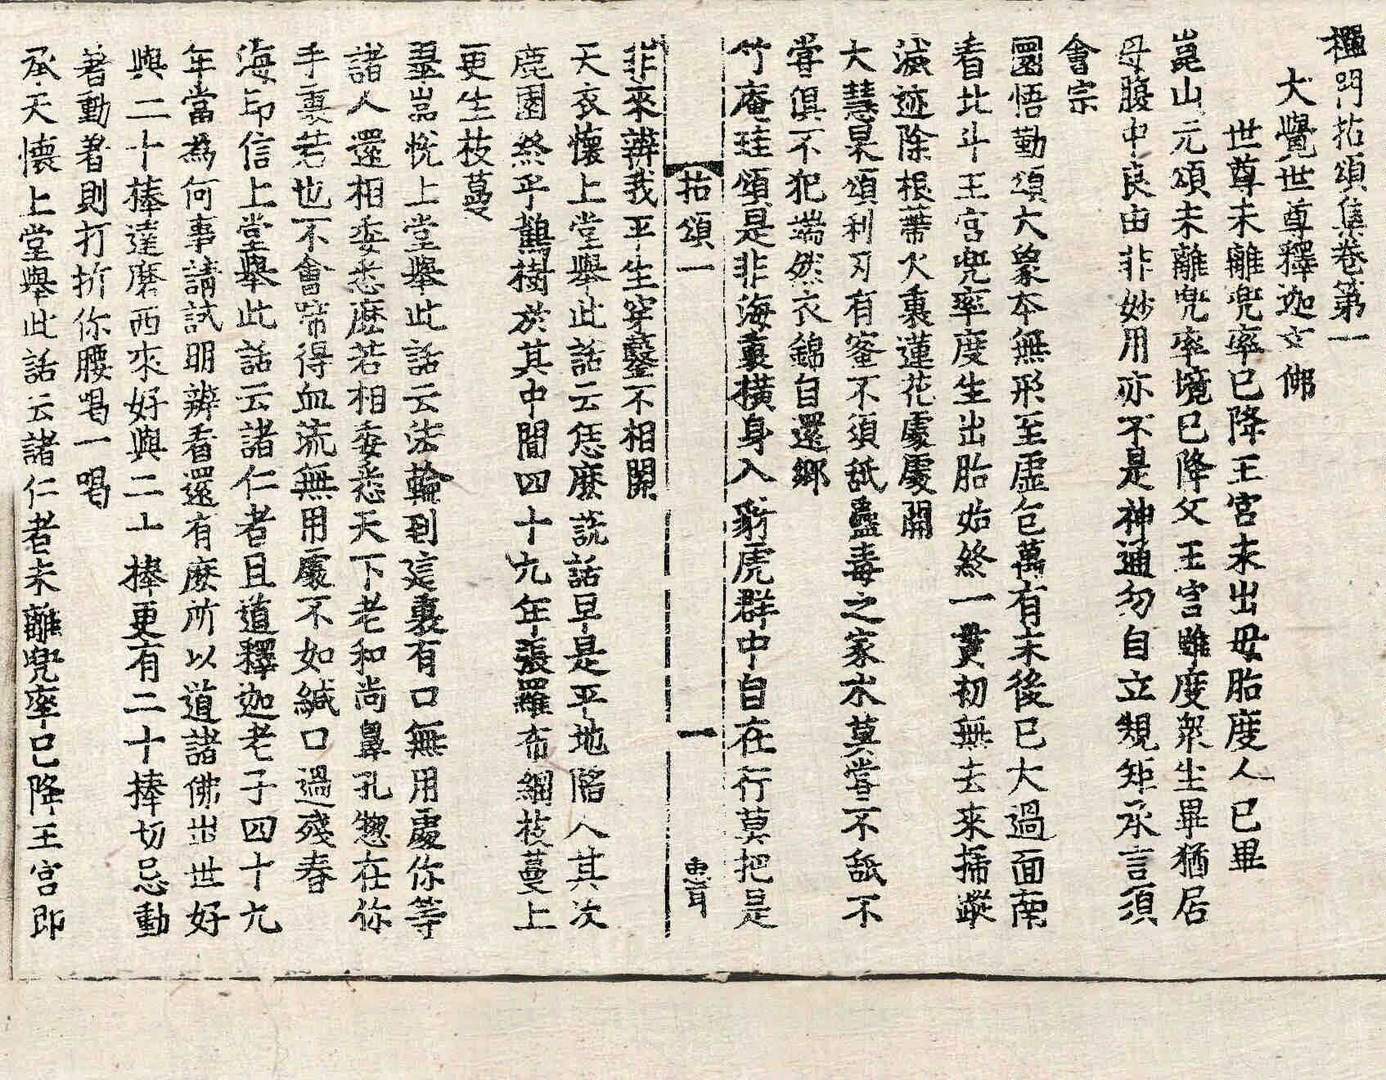 禪門拈頌集卷第一
大覺世尊釋迦文佛
世尊未離兜率已降王宮未出毋胎度人已畢
崑山元頌未離兜率境已降父王宮雖度衆生畢猶居
母腹中良由非妙用亦不是神通勿自立䂓矩承言須
會宗
圜悟勤頌大象本無形至虛包萬有末後已大過面南
看北斗王宮兜率度生出胎始終一貫初無去來掃蹤
滅迹除根蔕火裏蓮花處處開
大慧杲頌利刃有蜜不須䑛蠱毒之家水莫嘗不䑛不
嘗俱不犯端然衣錦自還鄉
竹庵珪頌是非海裏橫身入豺虎群中自在行莫把是
拈頌一
一
惠育
非來辨我平生穿鑿不相關
天衣懷上堂舉此話云恁麽說話早是平地陷人其次
鹿園終乎鶴樹於其中間四十九年張羅布網枝蔓上
更生枝蔓
蔣山元上堂舉此話云法輪到這裏有口無用處你等
諸人還相委悉麽若相委悉天下老和尚鼻孔惣在你
手裏若也不會啼得血流無用處不如緘口過殘春
海印信上堂舉此話云諸仁者且道釋迦老子四十九
年當爲何事請試明辨看還有麽所以道諸佛出世好
與二十棒達磨西來好與二十棒更有二十棒切忌動
著動著則打折你腰喝一喝
承天懷上堂舉此話云諸仁者未離兜率已降王宮即